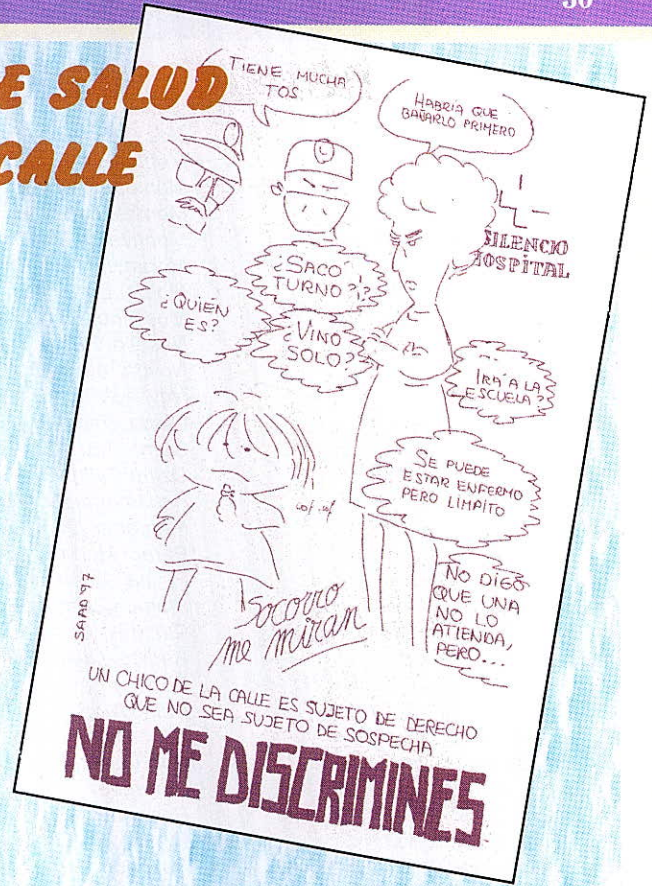 E SALUD
CALLE
TIENE MUCHA
TOS
HABRÍA QUE
BAÑARLO PRIMERO
SILENCIO
HOSPITAL
¿SACÓ
TURNO?
¿QUIÉN
ES?
¿VINO
SOLO?
IRÁ A LA
ESCUELA?
SE PUEDE
ESTAR ENFERMO
PERO LIMPITO
cof cof
NO DIGO
QUE UNA
NO LO
ATIENDA,
PERO...
SAAD 97
Socorro
me miran
UN CHICO DE LA CALLE ES SUJETO DE DERECHO
QUE NO SEA SUJETO DE SOSPECHA
NO ME DISCRIMINES